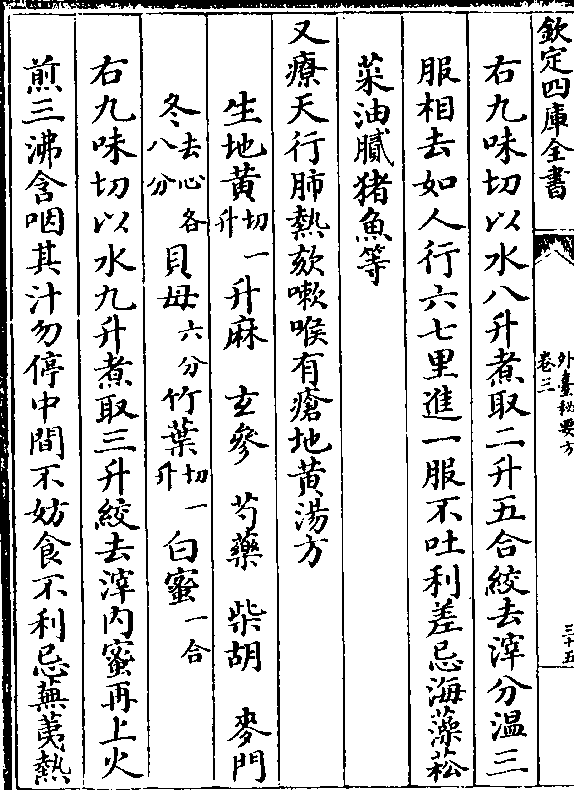 欽定四庫全書
外臺秘要方
卷三
三十五
右九味切以水八升煮取二升五合絞去滓分溫三
服相去如人行六七里進一服不吐利差忌海藻菘
菜油膩猪魚等
又療天行肺熱欬嗽喉有瘡地黄湯方
生地黄切一升 升麻 玄參 芍藥 柴胡 麥門
冬去心各八分 貝母六分 竹葉切一升 白蜜一合
右九味切以水九升煮取三升絞去滓内蜜再上火
煎三沸含咽其汁勿停中間不妨食不利忌蕪荑熱